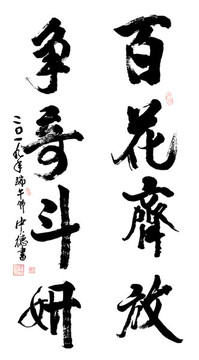 百花齊放
争奇斗妍
二〇一九年端午節中德書